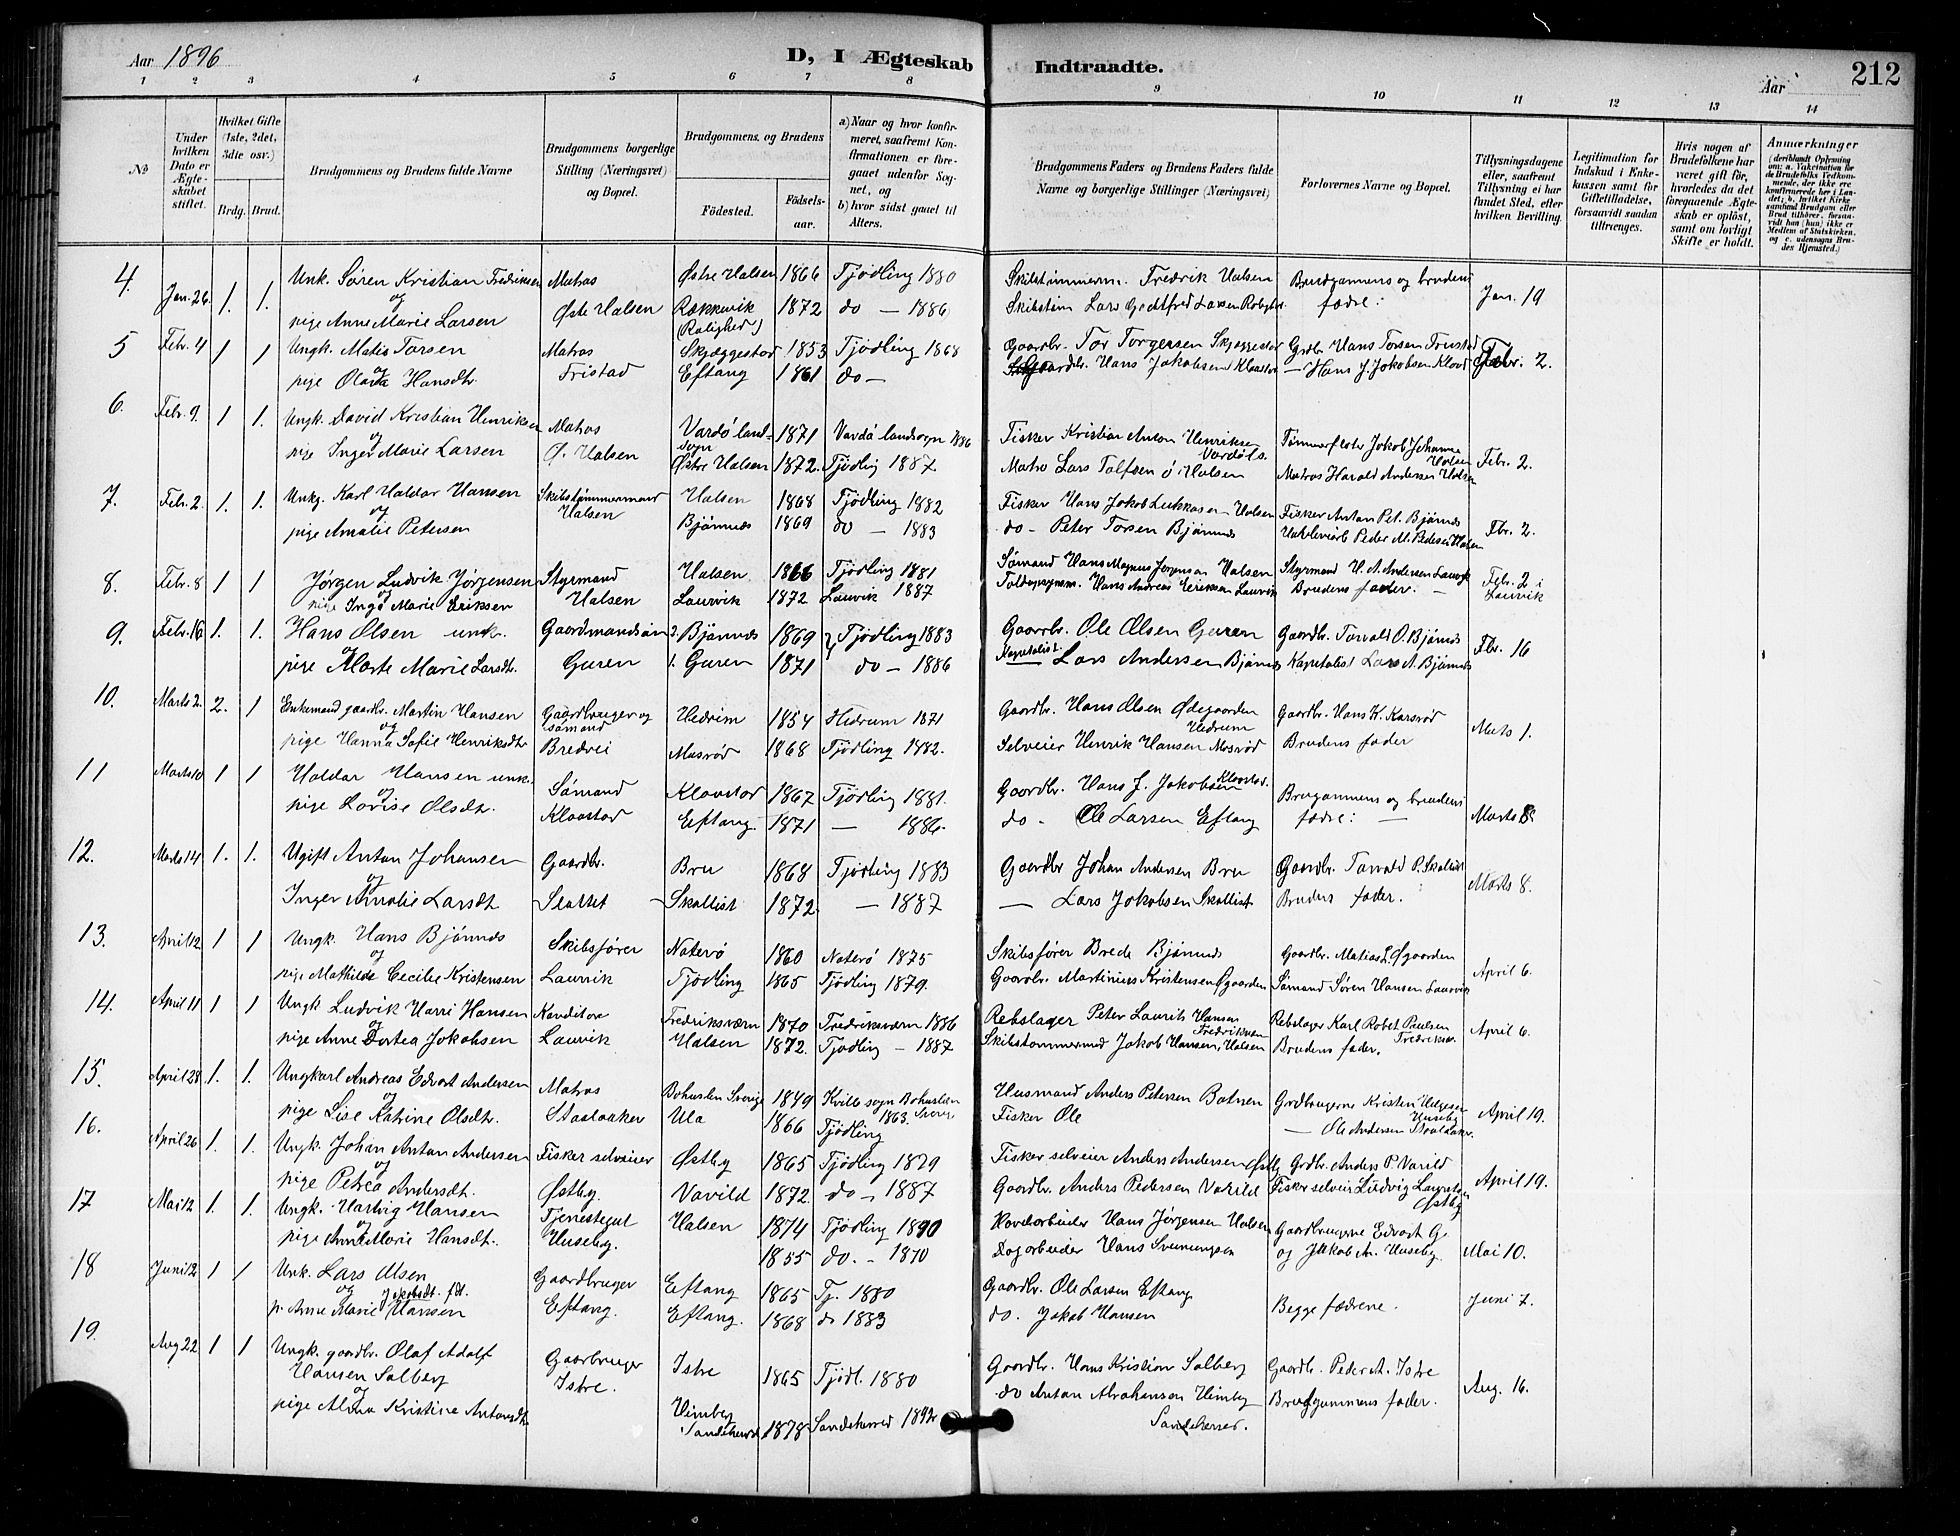 Aar 1896
D, I Ægteskab Indtraadte.
Aar
212
1 2 3 4 5 6 7 8 9 10 11 12 13 14
No
Under hvilken Dato er Ægteskabet stiftet.
Hvilket Gifte (1ste, 2det, 3die osv.)
Brdg. Brud.
Brudgommens og Brudens fulde Navne
Brudgommens borgerlige Stilling (Næringsvei) og Bopæl.
Brudgommens, og Brudens
Fødested.
Fødselsaar.
a) Naar og hvor konfirmeret, saafremt Konfirmationen er foregaaet udenfor Sognet, og
b) hvor sidst gaaet til Alters.
Brudgommens Faders og Brudens Faders fulde Navne og borgerlige Stillinger (Næringsvei)
Forlovernes Navne og Bopæl.
Tillysningsdagene eller, saafremt Tillysning ei har fundet Sted, efter hvilken Bevilling.
Legitimation for Indskud i Enkekassen samt for Giftetilladelse, forsaavidt saadan tiltrænges.
Hvis nogen af Brudefolkene har været gift før, hvorledes da det foregaaende Ægteskab er opløst, samt om lovligt Skifte er holdt.
Anmærkninger
4. Jan. 26. 1. 1. Unk. Søren Kristian Fredriksen Matros Østre Halsen 1866 Tjødling 1880 Skibstimmerm. Fredrik Halsen Brudgommens og brudens Jan. 19
og
pige Anne Marie Larsen Østre Halsen Rækkevik 1872 do — 1886 Skibstøm Lars Godtfred Larsen fædre:
(Rolighed)
5 Febr. 4 1 1 Ungk. Matis Torsen Matros Skjæggestad 1853 Tjødling 1868 Gaardbr. Tor Torgersen Skjeggestad Grdbr Hans Torsen Tristad Febr. 2.
og
pige Olava Hansdtr. Tristad Eftang 1861 do — Gaardbr. Hans Jakobsen Klaastad — Hans J. Jakobsen
6. Febr. 9. 1 1. Ungk. David Kristian Henriksen Matros Vardø landsogn 1871 Vardø landsogn 1886 Fisker Kristian Anton Henriksen Vardø ls. Jakob Johanne Halsen Febr. 2.
og
pige Inger Marie Larsen Ø. Halsen Østre Halsen 1872. Tjødlig 1887. Lars Halsen Matros Harald Andersen Halsen
7. Febr. 2. 1. 1. Unkg. Karl Haldor Hansen Skibstømmermand Halsen 1868 Tjødling 1882 Fisker Hans Jakob Lukkasen Halsen Fisker Anton Pet. Bjønnes Fbr. 2.
og Halsen
pige Amalie Petersen Bjønnes 1869 do — 1883 do — Peter Torsen Bjønnes Peder M. Pedersen Halsen
8. Febr. 8 1 1 Jørgen Ludvik Jørgensen Styrmand Halsen 1866 Tjødling 1881 Sømand Hans Magnus Jørgensen Halsen Styrmand H. A. Andersen Laurvik Febr. 2 i Laurvik
og
pige Inga Marie Eriksen Halsen Laurvik 1872 Laurvik 1887 Hans Andreas Eriksen Laurvik Brudens fader. —
9. Febr. 16. 1. 1. Hans Olsen unk. Gaardmandsøn 2. Bjønnes 1869 Tjødling 1883 Gaardbr. Ole Olsen Guren Gaardbr. Torvald O. Bjønnes Fbr. 16
og
pige Marte Marie Larsdtr. Guren 1. Guren 1871 do — 1886 Kapitalist. Lars Andersen Bjønnes Kapitalist Lars A. Bjønnes
10. Marts 2. 2. 1 Enkemand gaardbr. Martin Hansen Gaardbruger og sømand Hedrum 1854 Hedrum 1871 Gaardbr. Hans Olsen Ødegaarden Hedrum Gaardbr. Hans K. Marts 1.
og
pige Hanna Sofie Henriksdtr Bredvei Masrød 1868 Tjødling 1882. Selveier Henrik Hansen Masrød Brudens fader
11 Marts 10 1 1 Haldor Hansen unk. Sømand Klaastad 1867 Tjødling 1881. Gaardbr. Hans J. Jakobsen Klaastad. Brugammens og brudens Marts 8.
og
pige Lovise Olsdtr. Klaastad Eftang 1871 — 1886. do — Ole Larsen Eftang fædre: —
12. Marts 14 1. 1. Ugift Anton Johansen Gaardbr. Bru 1868 Tjødling 1883 Gaardbr Johan Andersen Bru Gaardbr. Torvald P. Skallist Marts 8.
og
Inger Amalie Larsdt Slattet Skallist 1872 — 1887 — Lars Jakobsen Skallist Brudens fader.
13. April 12 1 1 Ungk. Hans Bjønnes Skibsfører Nøterø 1860 Nøterø 1875 Skibsfører Brede Bjønnes Gaardbr. Matias Øgaarden April 6.
og
pige Mathilde Cecilie Kristensen Laurvik Tjødling 1865 Tjødling 1879. Gaardbr. Martinius Kristensen Øgaarden Sømand Søren Hansen Laurvik
14. April 11 1 1 Ungk Ludvik Harri Hansen Konditore Fredriksværn 1870 Fredriksværn 1886 Rebslager Peter Laurits Hansen Fredriksværn Rebslager Karl Robet Paulsen Fredriksv. April 6.
og
pige Anne Dortea Jakobsen Laurvik Halsen 1872. Tjødling — 1887 Skibstømmermd Jakob Hansen, Halsen Brudens fader.
15. April 28 1. 1. Ungkarl Andreas Edvart Andersen Matros Bohuslen Sverige 1849 Kville sogn Bohuslen 1863. Sverige Husmand Anders Petersen Botnen Grdbrugerne Kristen Helgesen Huseby April 19.
og
pige Lise Katrine Olsdtr. Staalaaker Ula 1866 Tjødling Fisker Ole — Ole Andersen Staalaaker.
16. April 26 1. 1. Ungk. Johan Anton Andersen Fisker selveier Østby 1865 Tjødling 1879 Fisker selveier Anders Andersen Østby Grdbr. Anders P. Varild April 19.
og
pige Petrea Andersdt. Østby. Varild 1872. do — 1887 Gaardbr. Anders Pedersen Varild Fisker selveier Ludvig Lauritsen Østby
17 Mai 12 1. 1. Ungk. Hartvig Hansen Tjenestegut Halsen 1874 Tjødling 1890 Hans Jørgensen Halsen Gaardbrugerne Edvart G. Mai 10.
og
pige Anne Marie Hansdt. Huseby. 1855 do. — 1870 Dagarbeider Hans Svenungsen og Jakob A. Huseby
18 Juni 12 1 1 Unk. Lars Olsen Gaardbruger Eftang 1865 Tj. 1880 Gaardbr. Ole Larsen Eftang Begge fædrene. Juni 7.
og Jakobsdt. fdt.
p. Anne Marie Hansen Eftang. Eftang. 1868 do 1883 do. Jakob Hansen
19. Aug 22 1 1 Ungk. gaardbr. Olaf Adolf Gaarbruger Istre 1865 Tjødl. 1880 Gaardbr. Hans Kristian Solberg Gaardbr. Peder A. Istre Aug. 16.
Hansen Solberg Istre.
og
pige Alma Kristine Antonsdtr Himberg Sandeherred 1878 Sandeherred 1892 do Anton Abrahamsen Himberg Brudgommens fader.
Sandeherred.